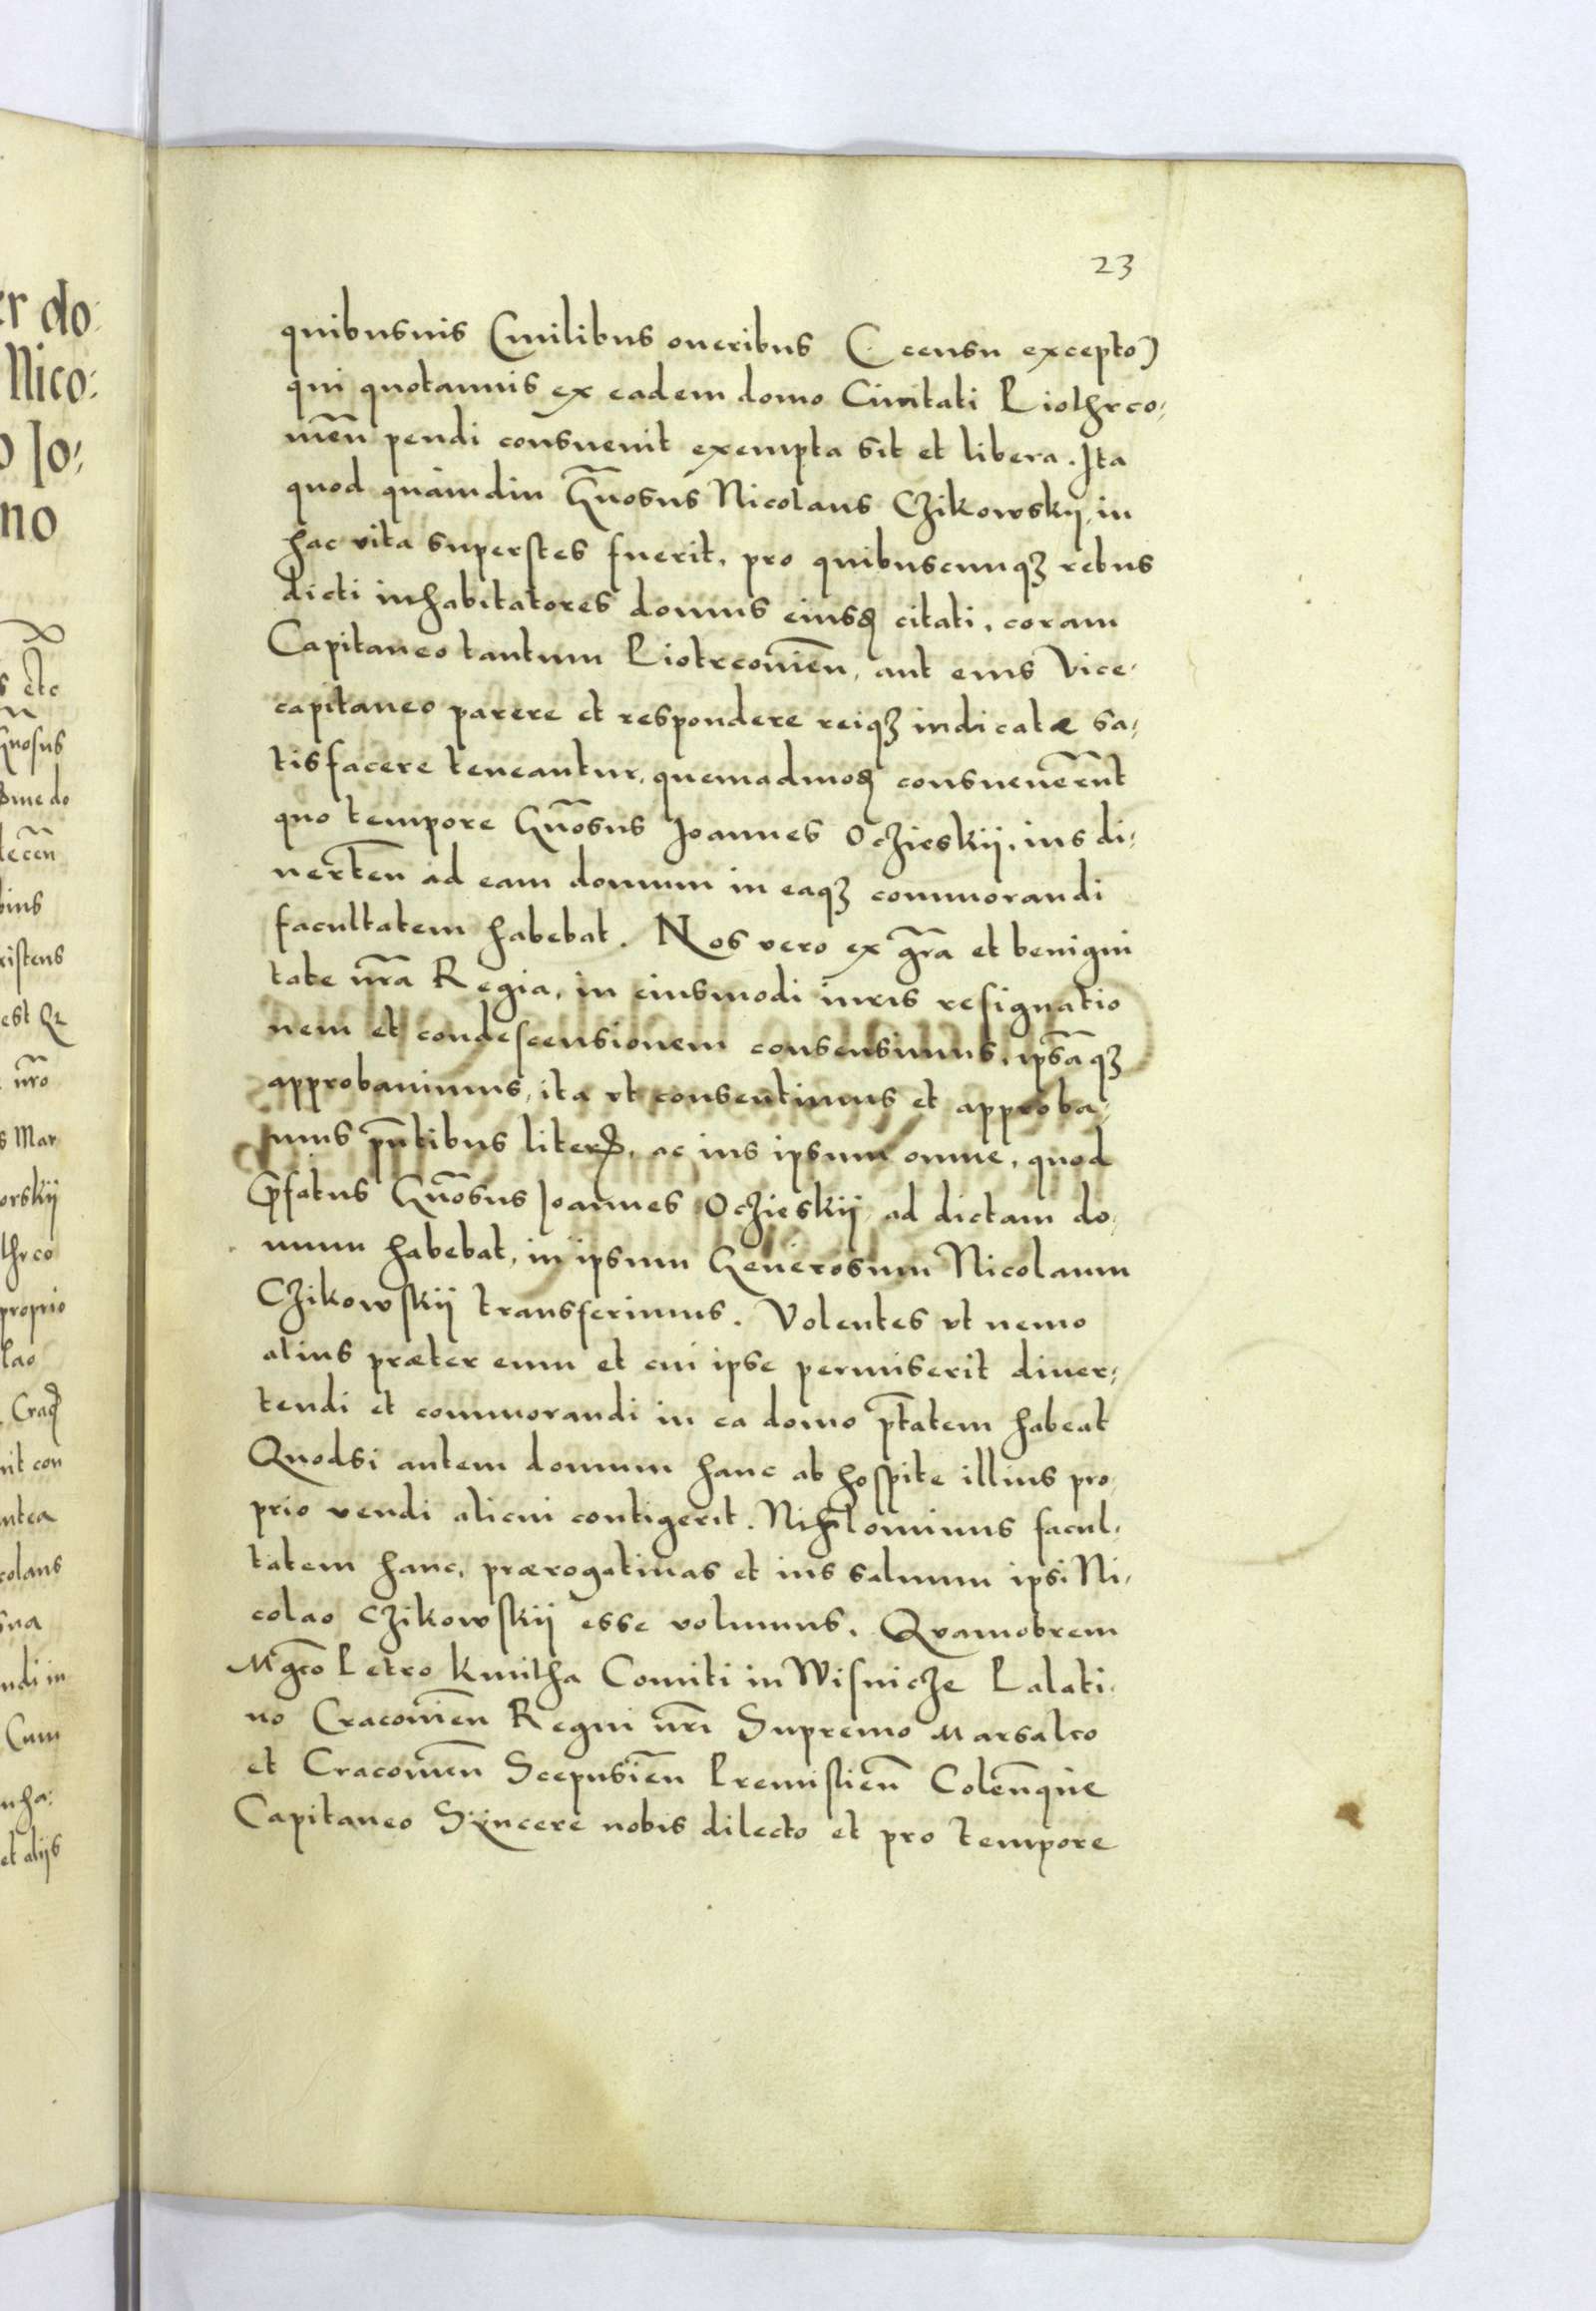 23
quibusuis Ciuilibus oneribus (censu excepto)
qui quotannis ex eadem domo Ciuitati Piothrco,
uien̄ pendi consueuit exempta sit et libera. Ita
quod quamdiu Gn̄osus Nicolaus Czikowskij, in
hac vita superstes fuerit, pro quibuscunqꝫ rebus
dicti inhabitatores domus eiusꝺ citati, coram
Capitaneo tantum Piotrcouien̄, aut eius Vice,
capitaneo parere et respondere reiqꝫ iudicatæ sa,
tisfacere teneantur, quemadmoꝺ consueuer̄nt
quo tempore Gn̄osus Joannes Oczieskij, ius di,
uerten̄ ad eam domum in eaqꝫ commorandi
facultatem habebat. Nos vero ex gr̄a et benigni
tate nr̄a Regia, in eiusmodi iuris resignatio
nem et condescensionem consensimus, ips̄aqꝫ
approbauimus, ita vt consentimus et approba,
mus pn̄tibus literꝭ, ac ius ipsum omne, quod
p̄fatus Gn̄osus Joannes Oczieskij ad dictam do,
mum habebat, in ipsum Generosum Nicolaum
Czikowskij transferimus. Volentes vt nemo
alius præter eum et cui ipse permiserit diuer,
tendi et commorandi in ea domo pt̄atem habeat
Quodsi autem domum hanc ab hospite illius pro
prio vendi alicui contigerit. Nih̄lominus facul,
tatem hanc, prærogatiuas et ius saluum ipsi Ni,
colao Czikowskij esse volumus. Quamobrem
Mgc̄o Petro Kmitha Comiti in Wisnicze Palati,
no Cracouien̄ Regni nr̄i Supremo Marsalco
et Cracouien̄ Scepusien̄ Premislien̄ Colen̄que
Capitaneo Syncere nobis dilecto et pro tempore
er do:
Nico:
o Jo:
no
s etc
Gnosus
ome do
bius
xistens
est
nr̄o
s Mar
orskij
thrco
proprio
lao
Crac
nit con
antea
colaus
sua
ndi in
Cum
nha:
et alijs